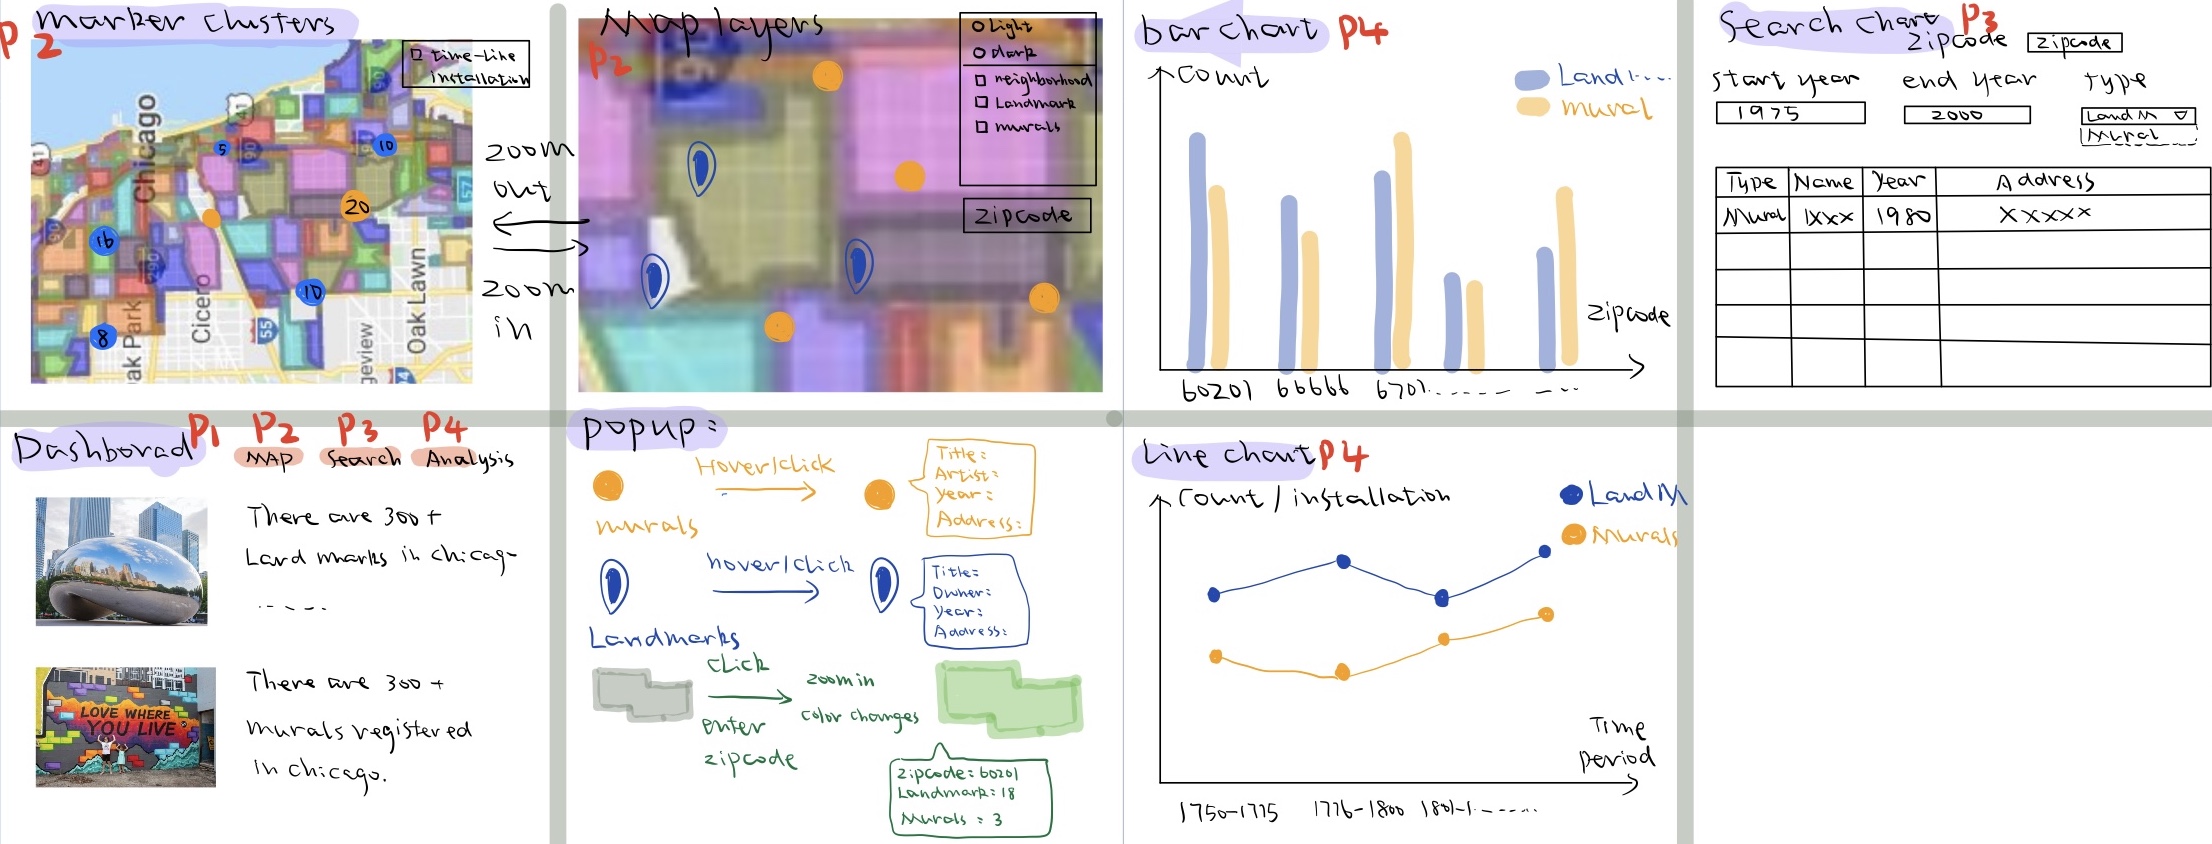 Marker Clusters
P2
time-line
installation
Chicago
41
90
41
5
10
90
57
20
16
90
290
10
8
Oak Park
Cicero
55
geview
Oak Lawn
zoom
out
zoom
in
Map layers
P2
Light
dark
neighborhood
Landmark
murals
zipcode
bar chart P4
Count
Land
mural
zipcode
60201 66666 6701.
Search Chart P3
zipcode zipcode
start year end year Type
1975 2000 Land M
Mural
Type Name Year Address
Mural XXX 1980 XXXXX
Dashborad P1 P2 P3 P4
MAP Search Analysis
There are 300+
Land marks in chicag-
.----
LOVE WHERE
YOU LIVE
There are 300+
murals registered
in chicago.
popup:
Hover/click
murals
Title:
Artist:
Year:
Address:
hover/click
Landmarks
Title:
Owner:
Year:
Address:
click
enter
zipcode
zoom in
color changes
zipcode: 60201
Landmark: 18
Murals : 3
Line chart P4
Count / installation
Land M
Murals
Time
period
1750-1775 1776-1800 1801-1------